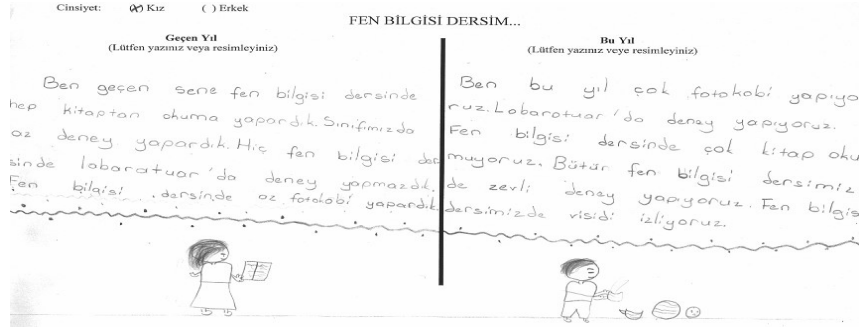 Cinsiyet: (x) Kız ( ) Erkek
FEN BİLGİSİ DERSİM...
Geçen Yıl
(Lütfen yazınız veya resimleyiniz)
Ben geçen sene fen bilgisi dersinde
hep kitaptan okuma yapardık. Sınıfımızda
az deney yapardık. Hiç fen bilgisi der
sinde labaratuar'da deney yapmazdık.
Fen bilgisi dersinde az fotokobi yapardık
Bu Yıl
(Lütfen yazınız veye resimleyiniz)
Ben bu yıl çok fotokobi yapıyo
ruz. Labaratuar'da deney yapıyoruz.
Fen bilgisi dersinde çok kitap oku
muyoruz. Bütün fen bilgisi dersimiz
de zevli deney yapıyoruz. Fen bilgis
dersimizde visidi izliyoruz.